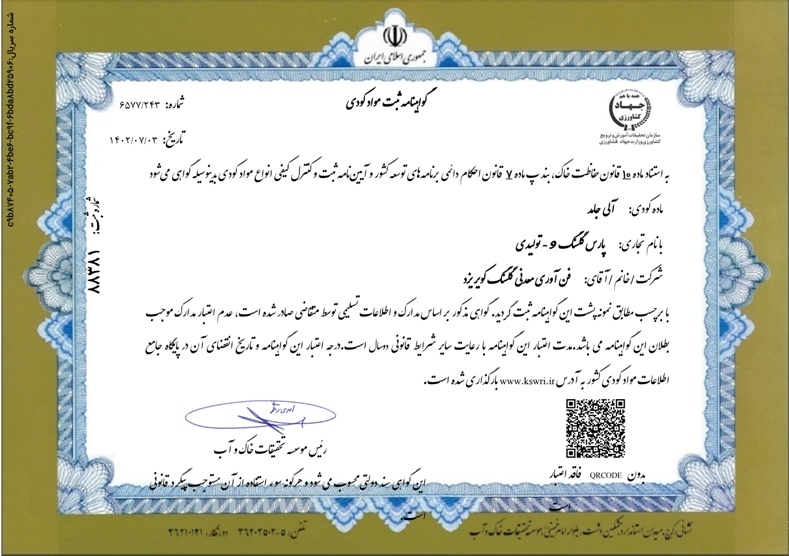 شماره سریال: c9b87405-7ab2-4be6-bc9f-6bda8bd25906
جمهوری اسلامی ایران
همه با هم
جهاد
کشاورزی
سازمان تحقیقات، آموزش و ترویج
کشاورزی وزارت جهاد کشاورزی
گواهینامه ثبت مواد کودی
شماره: ۶۵۷۷/۲۴۳
تاریخ: ۱۴۰۲/۰۷/۰۳
شماره ثبت: ۸۸۳۸۱
به استناد ماده ۱۰ قانون حفاظت خاک، بند پ ماده ۷ قانون احکام دائمی برنامه‌های توسعه کشور و آیین‌نامه ثبت و کنترل کیفی انواع مواد کودی بدینوسیله گواهی می‌شود
ماده کودی: آلی جامد
با نام تجاری: پارس گلسنگ 9 - تولیدی
شرکت / خانم / آقای: فن آوری معدنی گلسنگ کویر یزد
با برچسب مطابق نمونه پشت این گواهینامه ثبت گردید. گواهی مذکور بر اساس مدارک و اطلاعات تسلیمی توسط متقاضی صادر شده است، عدم اعتبار مدارک موجب
بطلان این گواهینامه می باشد. مدت اعتبار این گواهینامه با رعایت سایر شرایط قانونی دو سال است. درجه اعتبار این گواهینامه و تاریخ انقضای آن در پایگاه جامع
اطلاعات مواد کودی کشور به آدرس www.kswri.ir بارگذاری شده است.
رئیس موسسه تحقیقات خاک و آب
بدون QRCODE فاقد اعتبار
است
این گواهی سند دولتی محسوب می شود و هرگونه سوء استفاده از آن مستوجب پیگرد قانونی
است.
نشانی: کرج، میدان استاندارد، مشکین دشت، بلوار امام خمینی، موسسه تحقیقات خاک و آب
تلفن: ۵-۳۶۲۰۲۵۰ دورنگار: ۳۶۲۱۰۱۲۱